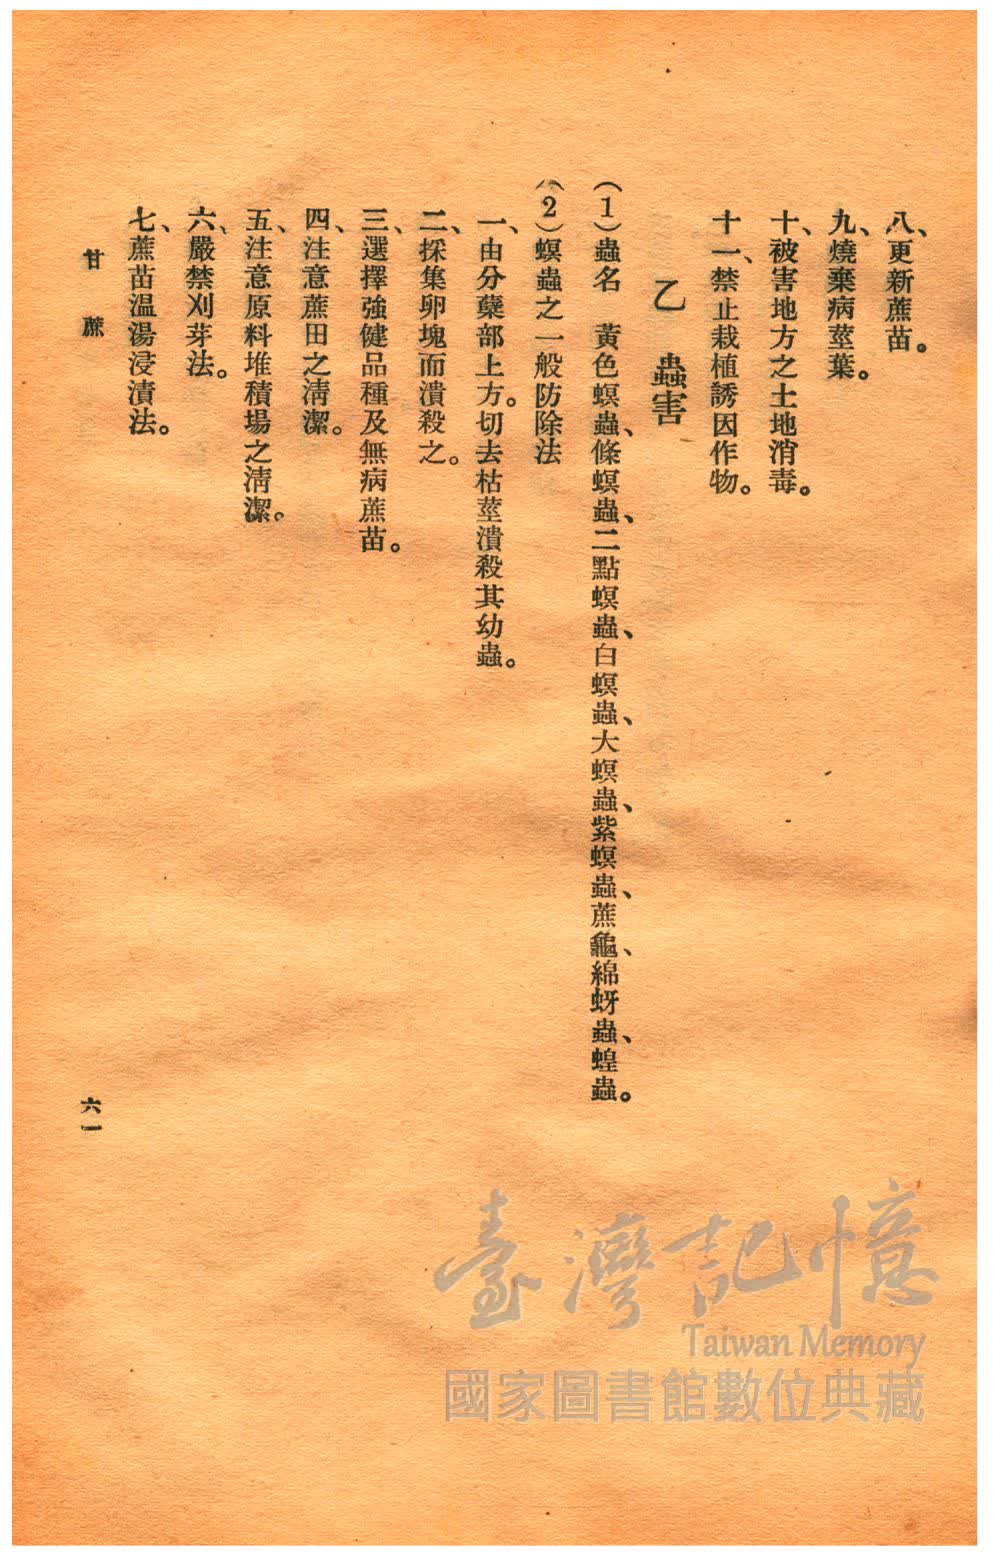 八、更新蔗苗。
九、燒棄病莖葉。
十、被害地方之土地消毒。
十一、禁止栽植誘因作物。
乙　蟲害
(1)蟲名　黃色螟蟲、條螟蟲、二點螟蟲、白螟蟲、大螟蟲、紫螟蟲、蔗龜、綿蚜蟲、蝗蟲。
(2)螟蟲之一般防除法
一、由分蘖部上方。切去枯莖潰殺其幼蟲。
二、採集卵塊而潰殺之。
三、選擇強健品種及無病蔗苗。
四、注意蔗田之清潔。
五、注意原料堆積場之清潔。
六、嚴禁刈芽法。
七、蔗苗溫湯浸漬法。
甘蔗
六一
臺灣記憶
Taiwan Memory
國家圖書館數位典藏